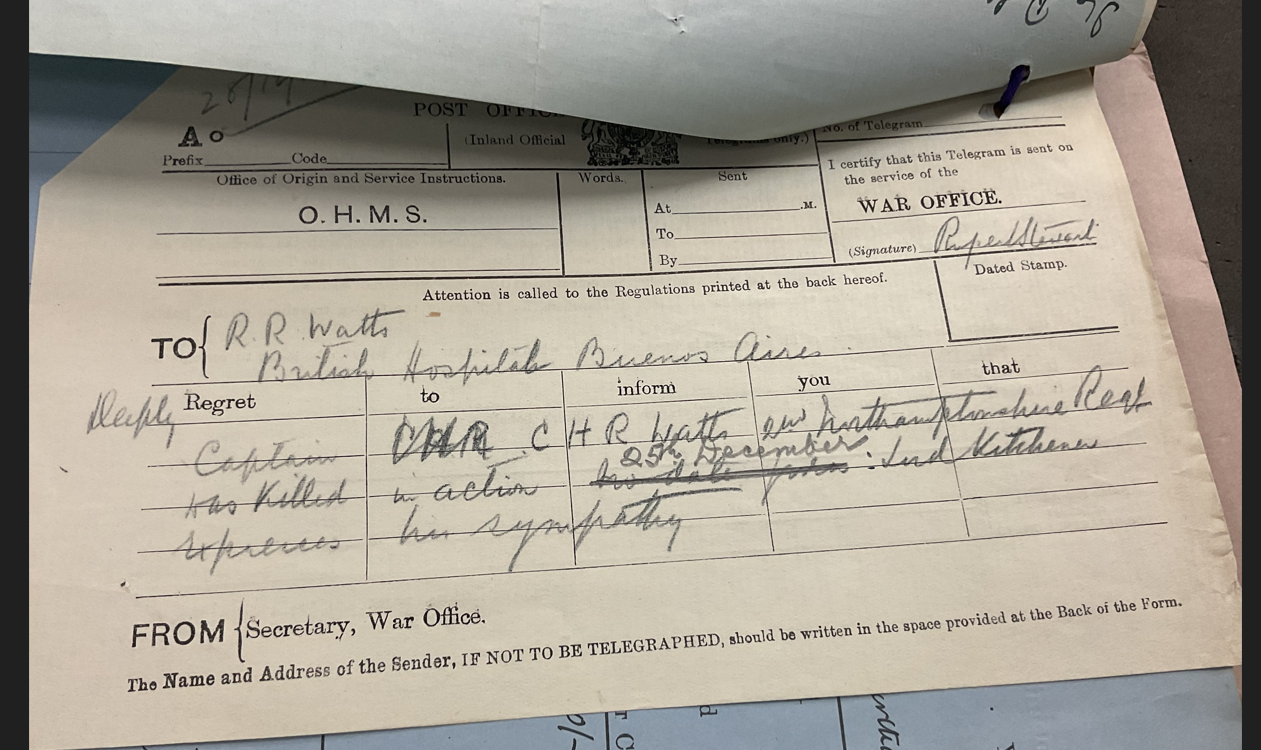 28/12
POST OFFIC
A o
(Inland Official Telegrams only.)
No. of Telegram
Prefix Code
Office of Origin and Service Instructions.
Words.
Sent
I certify that this Telegram is sent on
the service of the
O. H. M. S.
At .M.
WAR OFFICE.
To
(Signature) Rupert Stewart
By
Dated Stamp.
Attention is called to the Regulations printed at the back hereof.
TO { R. R. Watts
British Hospital Buenos Aires.
Deeply Regret to inform you that
Captain C H R Watts Northamptonshire Regt
25th December
was killed in action no date : Lord Kitchener
expresses his sympathy
FROM { Secretary, War Office.
The Name and Address of the Sender, IF NOT TO BE TELEGRAPHED, should be written in the space provided at the Back of the Form.